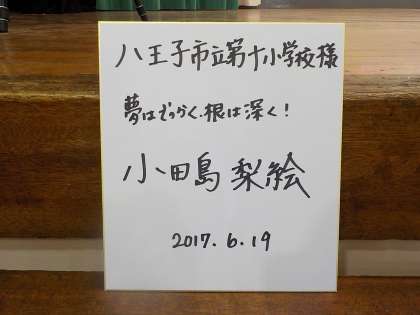 八王子市立第十小学校様
夢はでっかく、根は深く!
小田島梨絵
2017.6.19